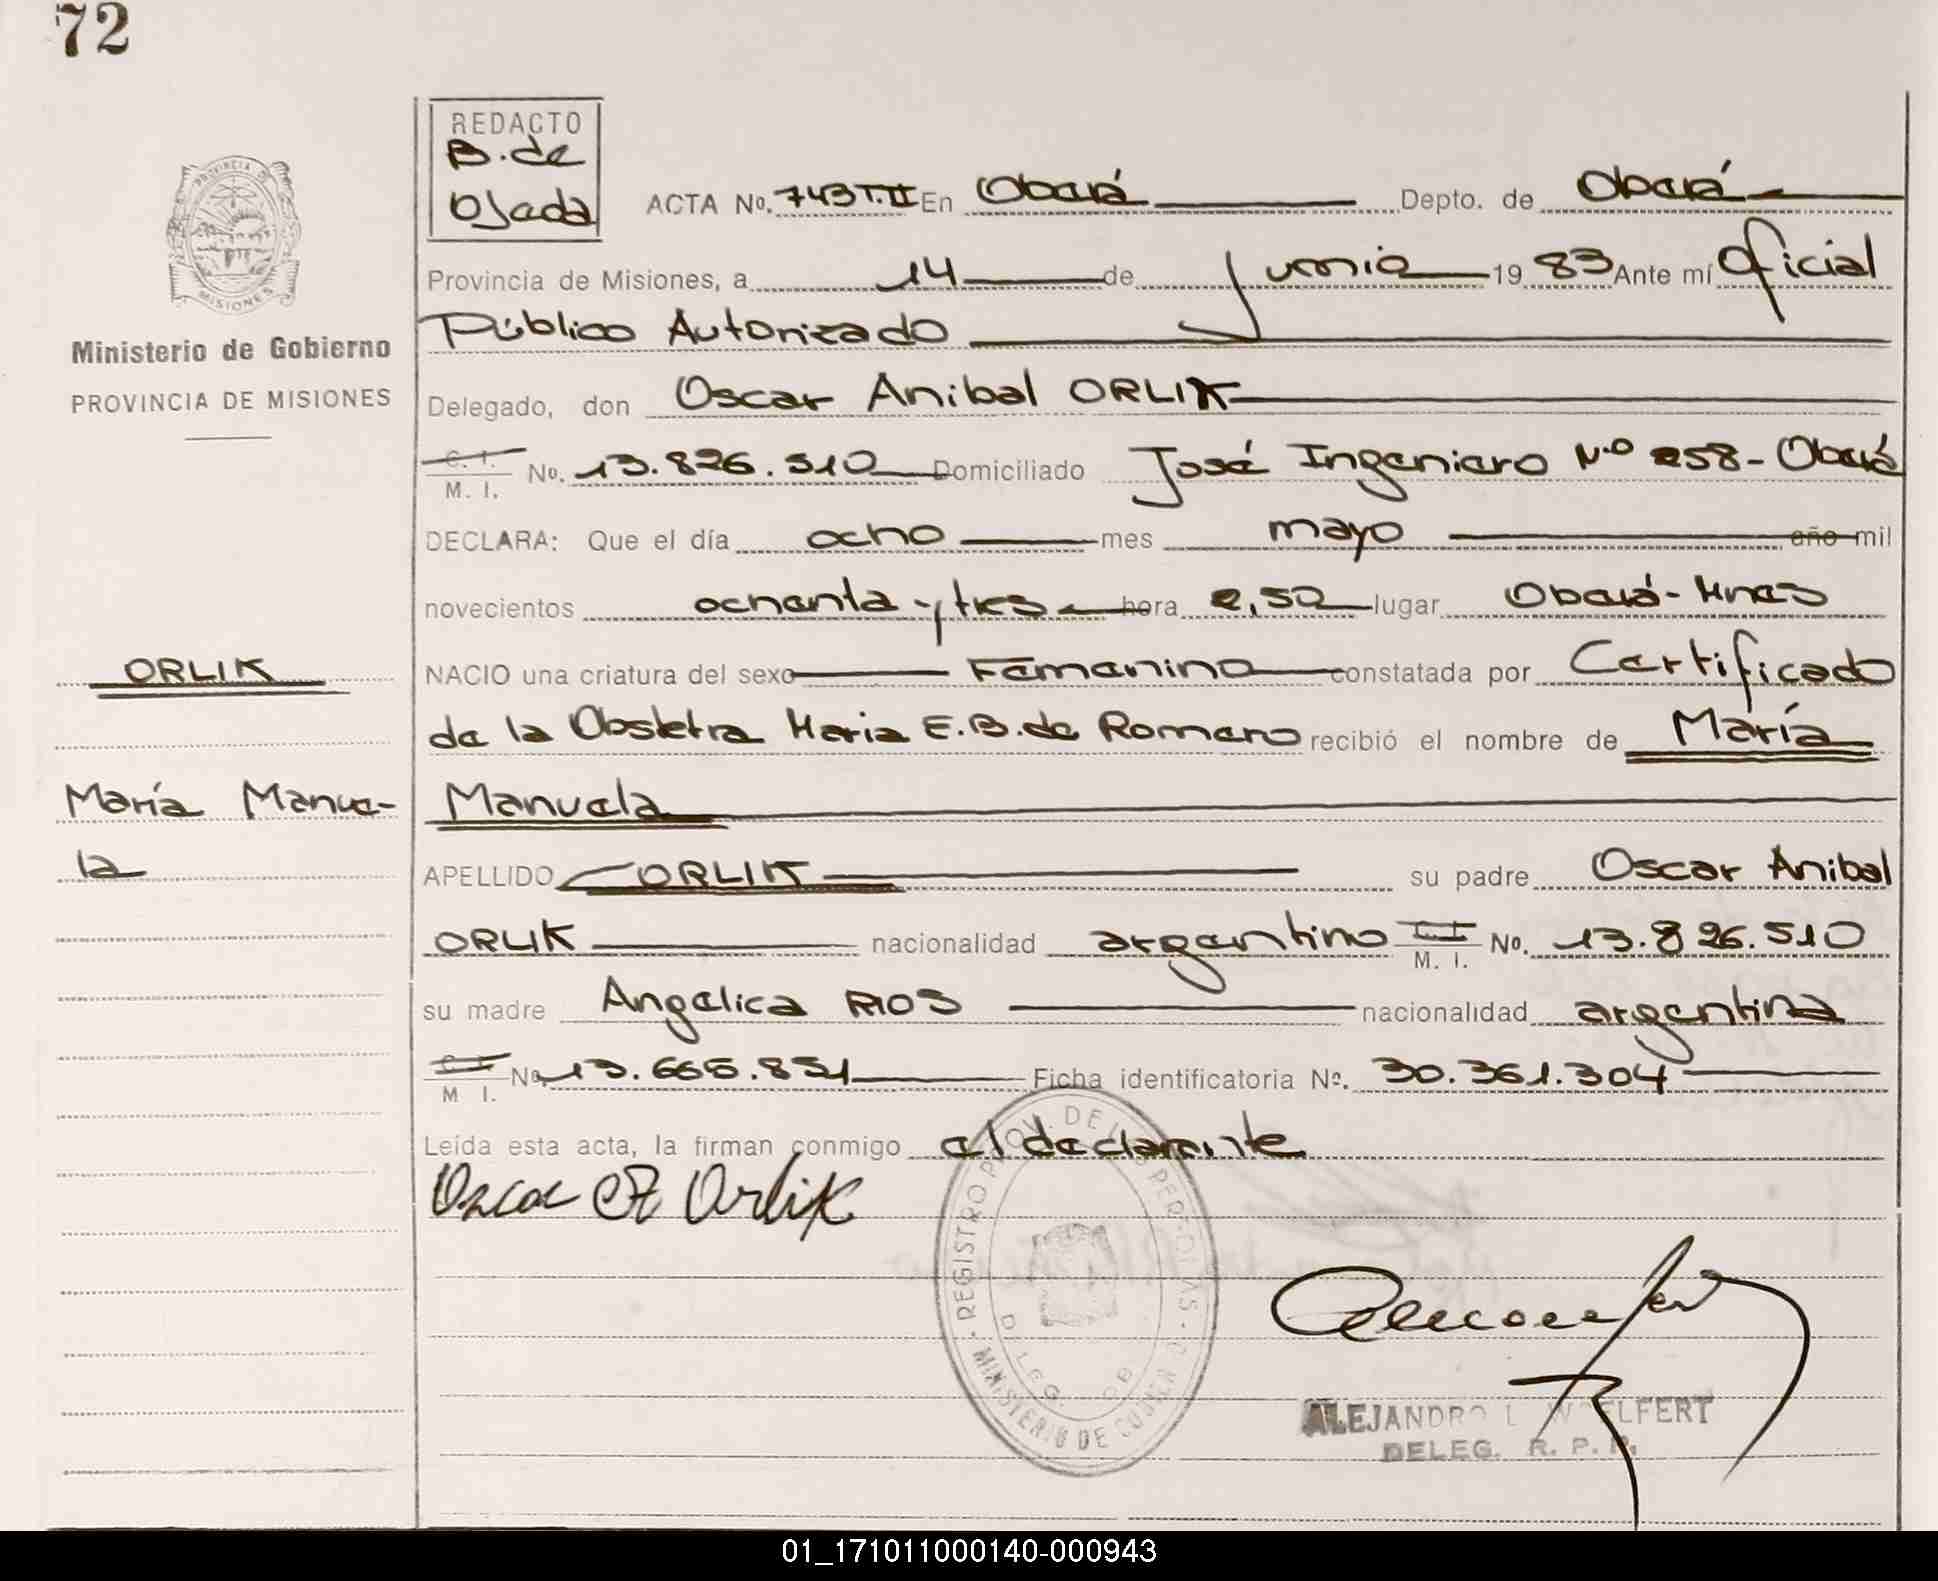 72
REDACTO
B. de
Ojeda
ACTA No. 743 T. II En Oberá Depto. de Oberá
Provincia de Misiones, a 14 de junio 19 83 Ante mí Oficial
Público Autorizado
Delegado, don Oscar Anibal ORLIK
C. I.
M. I. No. 13.826.510 Domiciliado José Ingeniero N.o 258 - Oberá
DECLARA: Que el día ocho mes mayo año mil
novecientos ochenta y tres hora 2,50 lugar Oberá - Mnes
ORLIK
NACIO una criatura del sexo Femenino constatada por Certificado
de la Obstetra Maria E. B. de Romero recibió el nombre de María
María Manue-
la
Manuela
APELLIDO ORLIK su padre Oscar Anibal
ORLIK nacionalidad argentino C. I.
M. I. No. 13.826.510
su madre Angelica RIOS nacionalidad argentina
C. I.
M. I. No. 13.665.831 Ficha identificatoria Nº. 30.361.304
Leída esta acta, la firman conmigo el declarante
Oscar A Orlik
PROVINCIA D MISIONES
Ministerio de Gobierno
PROVINCIA DE MISIONES
REGISTRO PROV. DE LAS PERSONAS
MINISTERIO DE GOBIERNO
DELEG. OB
ALEJANDRO L. WOELFERT
DELEG. R. P. P.
01_171011000140-000943